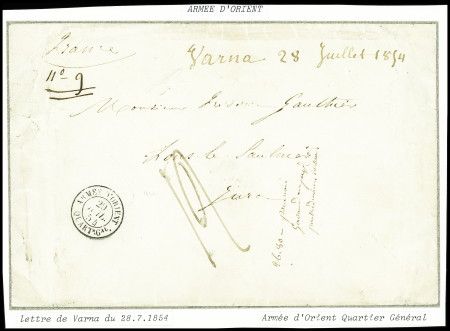 ARMEE D'ORIENT
France
Varna 28 Juillet 1854
n° 9
Monsieur Gauthier
Lons le Saulnier
Jura
ARMEE D'ORIENT
29
54
QUARTr GAL
lettre de Varna du 28.7.1854
Armée d'Orient Quartier Général